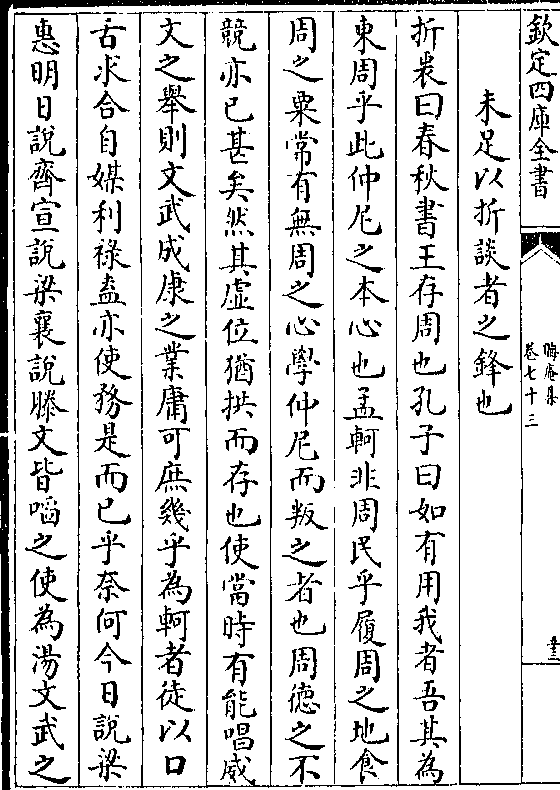 欽定四庫全書
晦庵集
卷七十三
未足以折談者之鋒也
折衷曰春秋書王存周也孔子曰如有用我者吾其為
東周乎此仲尼之本心也孟軻非周民乎履周之地食
周之粟常有無周之心學仲尼而叛之者也周德之不
競亦已甚矣然其虛位猶拱而存也使當時有能唱威
文之舉則文武成康之業庸可庶幾乎為軻者徒以口
舌求合自媒利祿盍亦使務是而已乎奈何今日說梁
惠明日說齊宣說梁襄說滕文皆啗之使為湯文武之